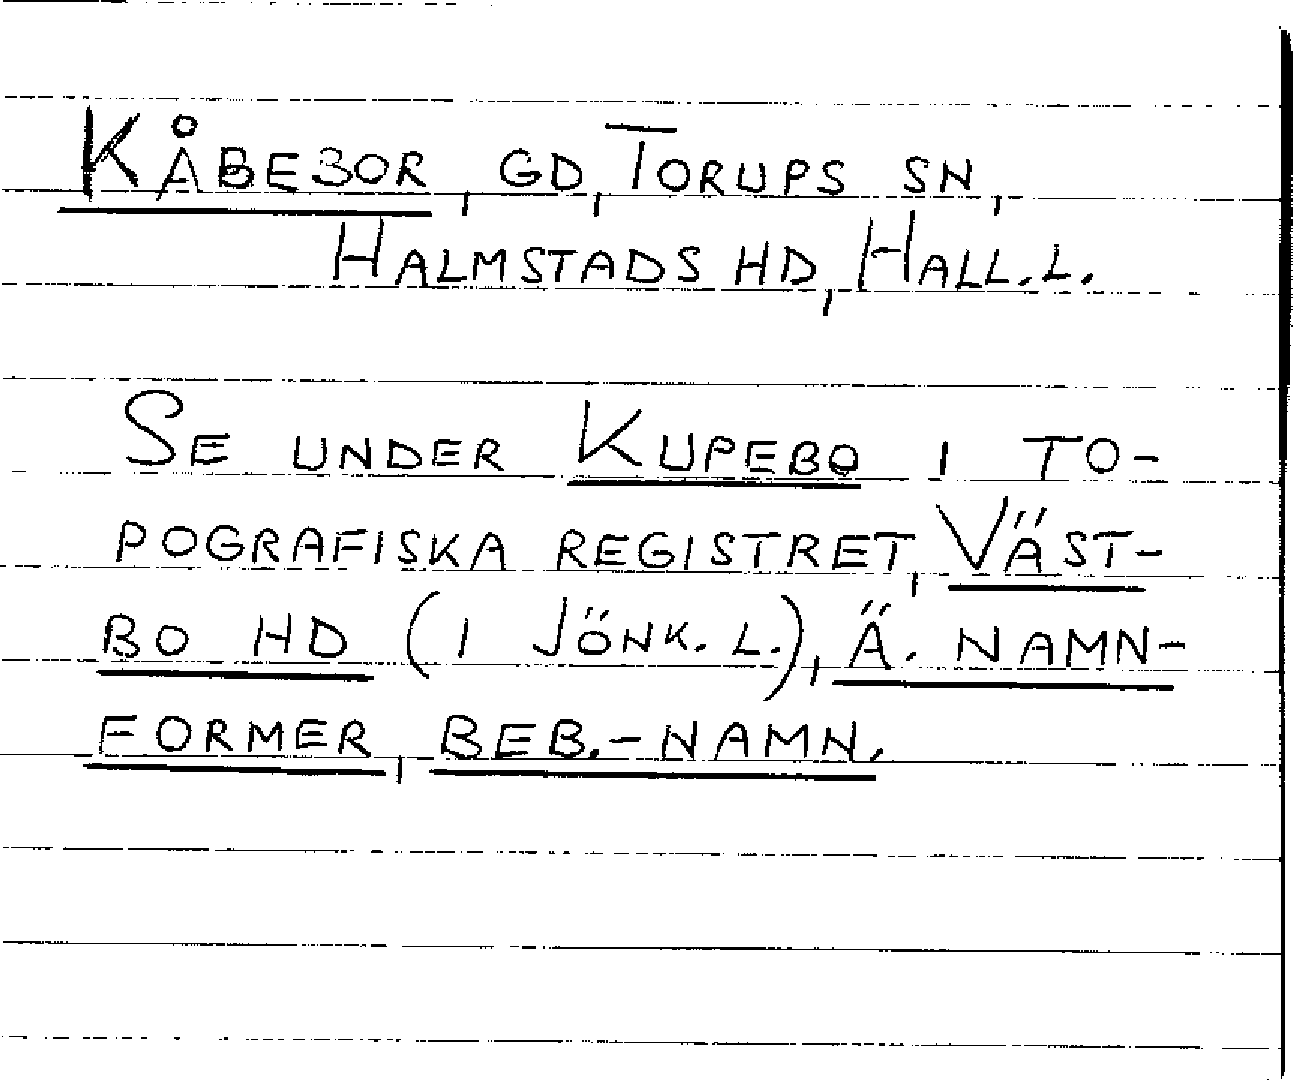 KÅBEBOR, GD, TORUPS SN,
HALMSTADS HD, HALL.L.
SE UNDER KUPEBO I TO-
POGRAFISKA REGISTRET, VÄST-
BO HD (I JÖNK. L.), Ä. NAMN-
FORMER, BEB.-NAMN.